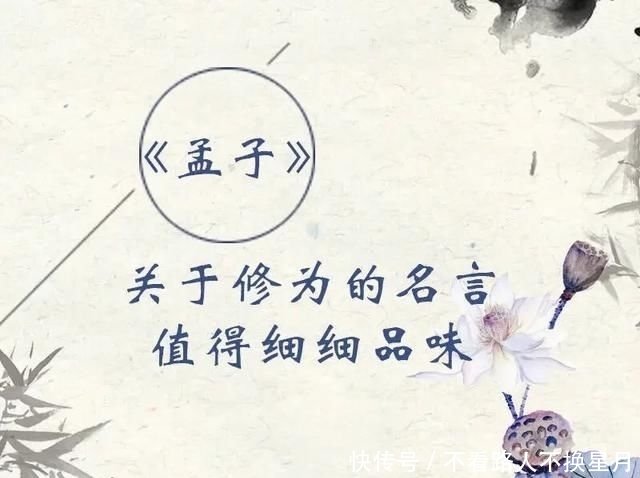 《孟子》
关于修为的名言
值得细细品味
快传号/不看路人不换星月